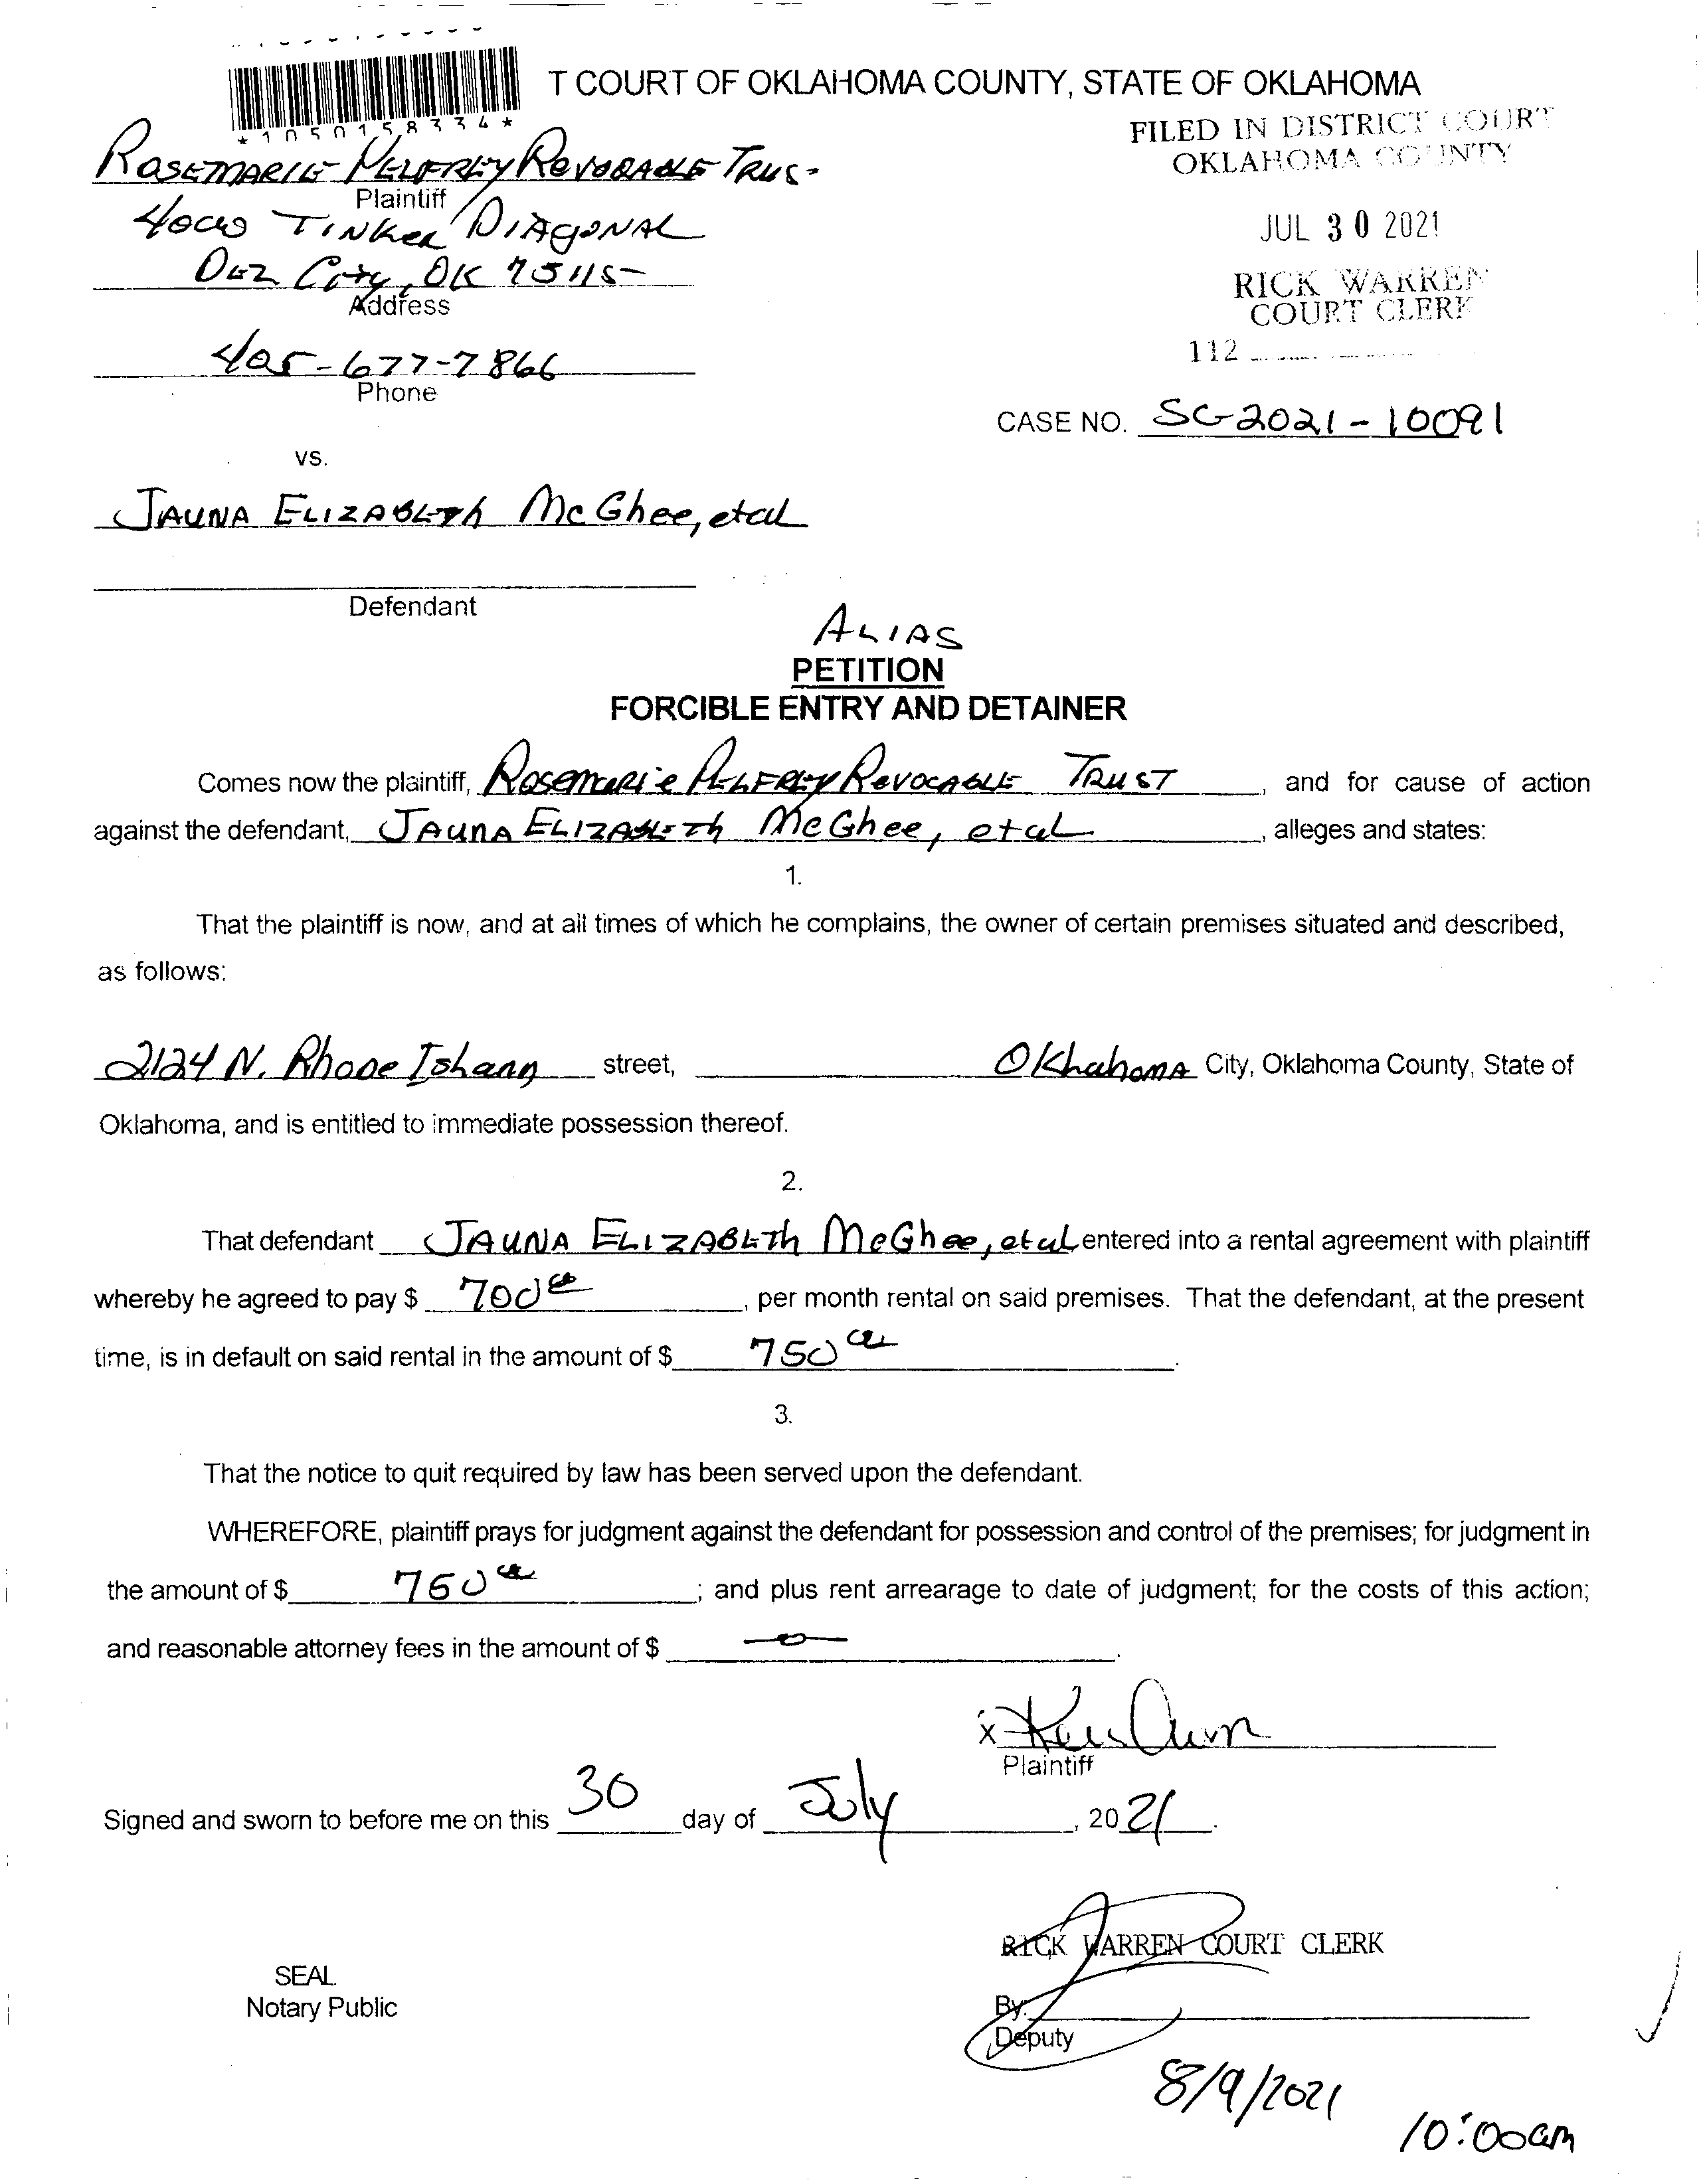 T COURT OF OKLAHOMA COUNTY, STATE OF OKLAHOMA
*1050158334*
FILED IN DISTRICT COURT
OKLAHOMA COUNTY
ROSEMARIE PELFREY REVOCABLE TRUS-
Plaintiff
TINKER DIAGONAL
City, OK
Address
JUL 30 2021
RICK WARREN
COURT CLERK
112
405-677-7866
Phone
CASE NO. SC-2021-10091
vs.
JAUNA ELIZABETH McGhee, etal
Defendant
ALIAS
PETITION
FORCIBLE ENTRY AND DETAINER
Comes now the plaintiff, Rosemarie PELFREY REVOCABLE TRUST, and for cause of action
against the defendant, JAUNA ELIZABETH McGhee, etal, alleges and states:
1.
That the plaintiff is now, and at all times of which he complains, the owner of certain premises situated and described,
as follows:
2124 N. Rhode Island street, Oklahoma City, Oklahoma County, State of
Oklahoma, and is entitled to immediate possession thereof.
2.
That defendant JAUNA ELIZABETH McGhee, etal entered into a rental agreement with plaintiff
whereby he agreed to pay $ 700 00, per month rental on said premises. That the defendant, at the present
time, is in default on said rental in the amount of $ 750 00.
3.
That the notice to quit required by law has been served upon the defendant.
WHEREFORE, plaintiff prays for judgment against the defendant for possession and control of the premises; for judgment in
the amount of $ 750 00; and plus rent arrearage to date of judgment; for the costs of this action;
and reasonable attorney fees in the amount of $ -0-.
x
Plaintiff
Signed and sworn to before me on this 30 day of July, 2021.
RICK WARREN COURT CLERK
SEAL
Notary Public
By:
Deputy
8/9/2021
10:00am